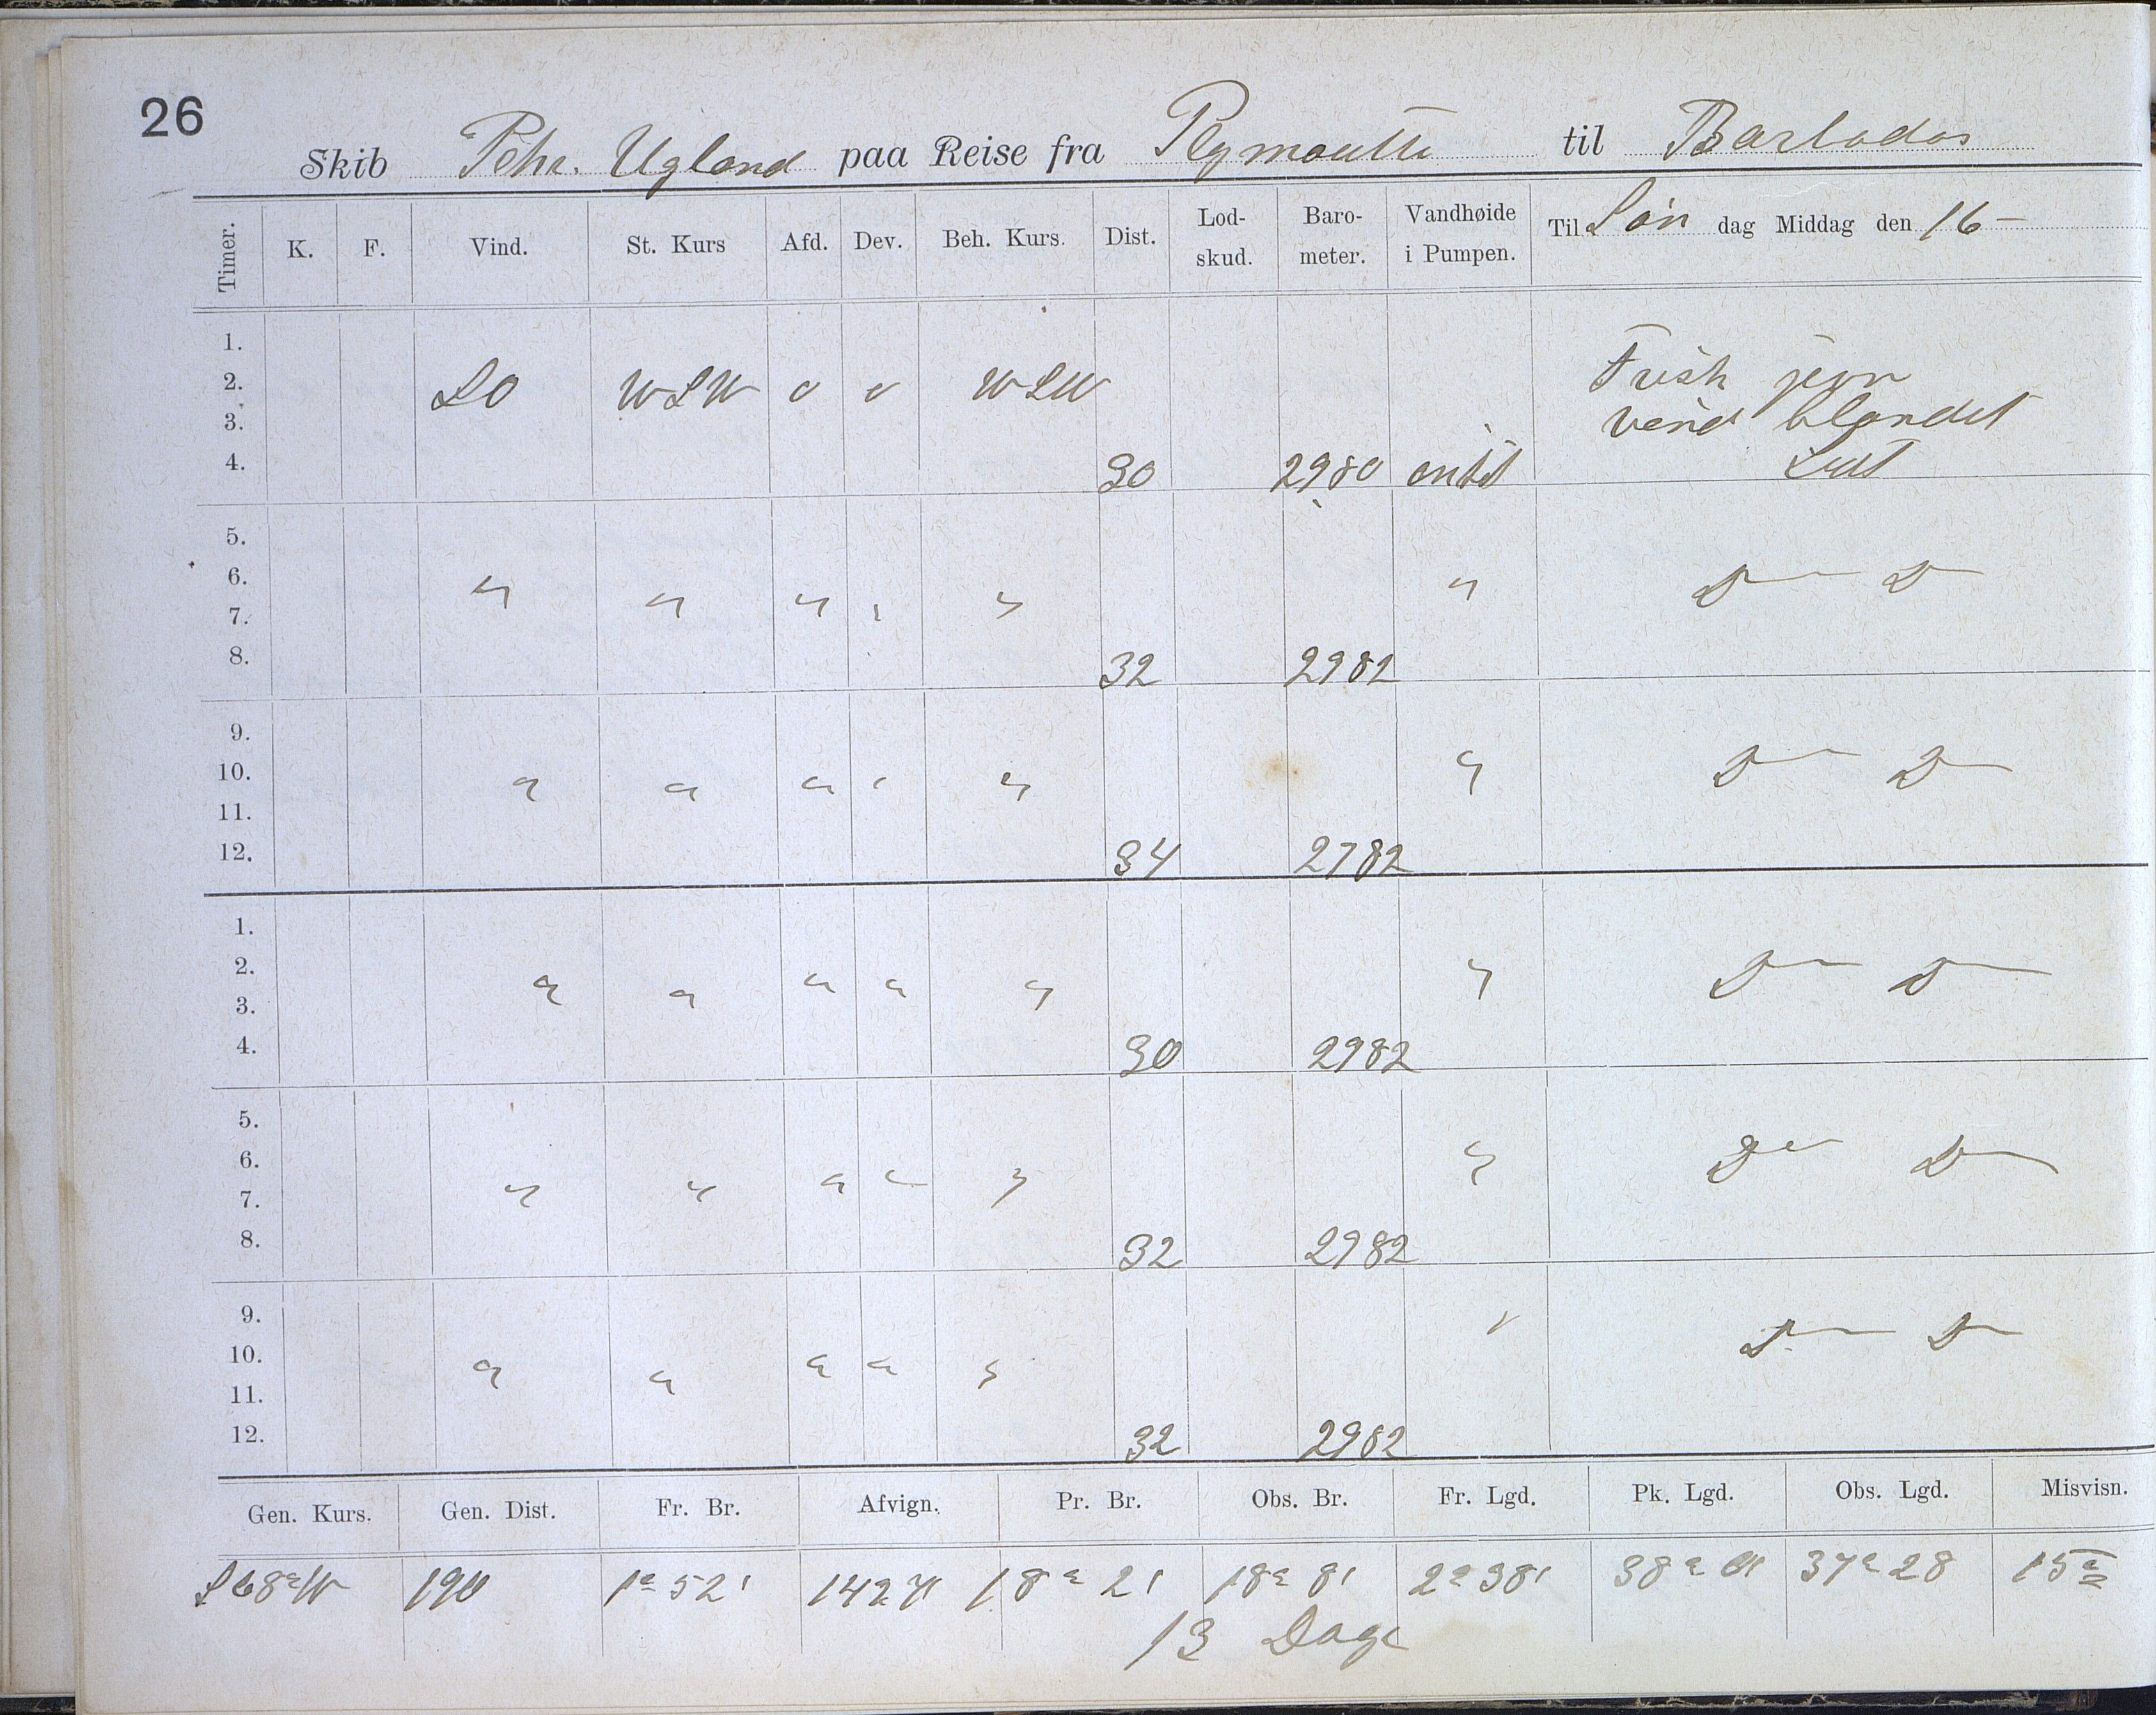 26
Skib Pehr. Ugland paa Reise fra Plymouth til Barbados
Timer. K. F. Vind. St. Kurs Afd. Dev. Beh. Kurs. Dist. Lod-skud. Baro-meter. Vandhøide i Pumpen. Til Søn dag Middag den 16 –
1. Frisk jevn
2. SO WSW 0 0 WSW
3. vind blandet
4. 30 2980 Luft
5.
6. " " " " " " D — D —
7.
8. 32 2982
9.
10. " " " " " " D — D —
11.
12. 34 2782
1.
2. " " " " " " D — D —
3.
4. 30 2982
5.
6. " " " " " " D — D —
7.
8. 32 2982
9.
10. " " " " " " D — D —
11.
12. 32 2982
Gen. Kurs. Gen. Dist. Fr. Br. Afvign. Pr. Br. Obs. Br. Fr. Lgd. Pk. Lgd. Obs. Lgd. Misvisn.
S68°W 190 1° 52' 18° 21 18° 81 2° 38' 37° 28 15°
13 Dage